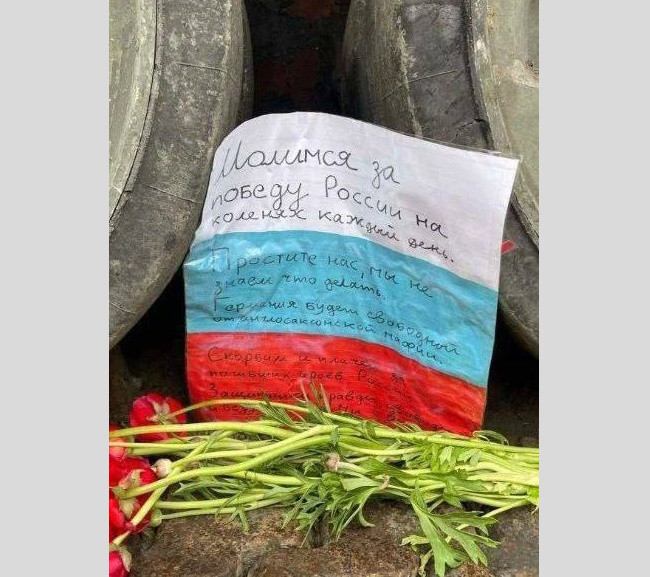 Молимся за
победу России на
коленях каждый день.
Простите нас, мы не
знаем что делать.
Германия будет свободной
от англосаксонской мафии.
Скорбим и плачем за
погибших героев России